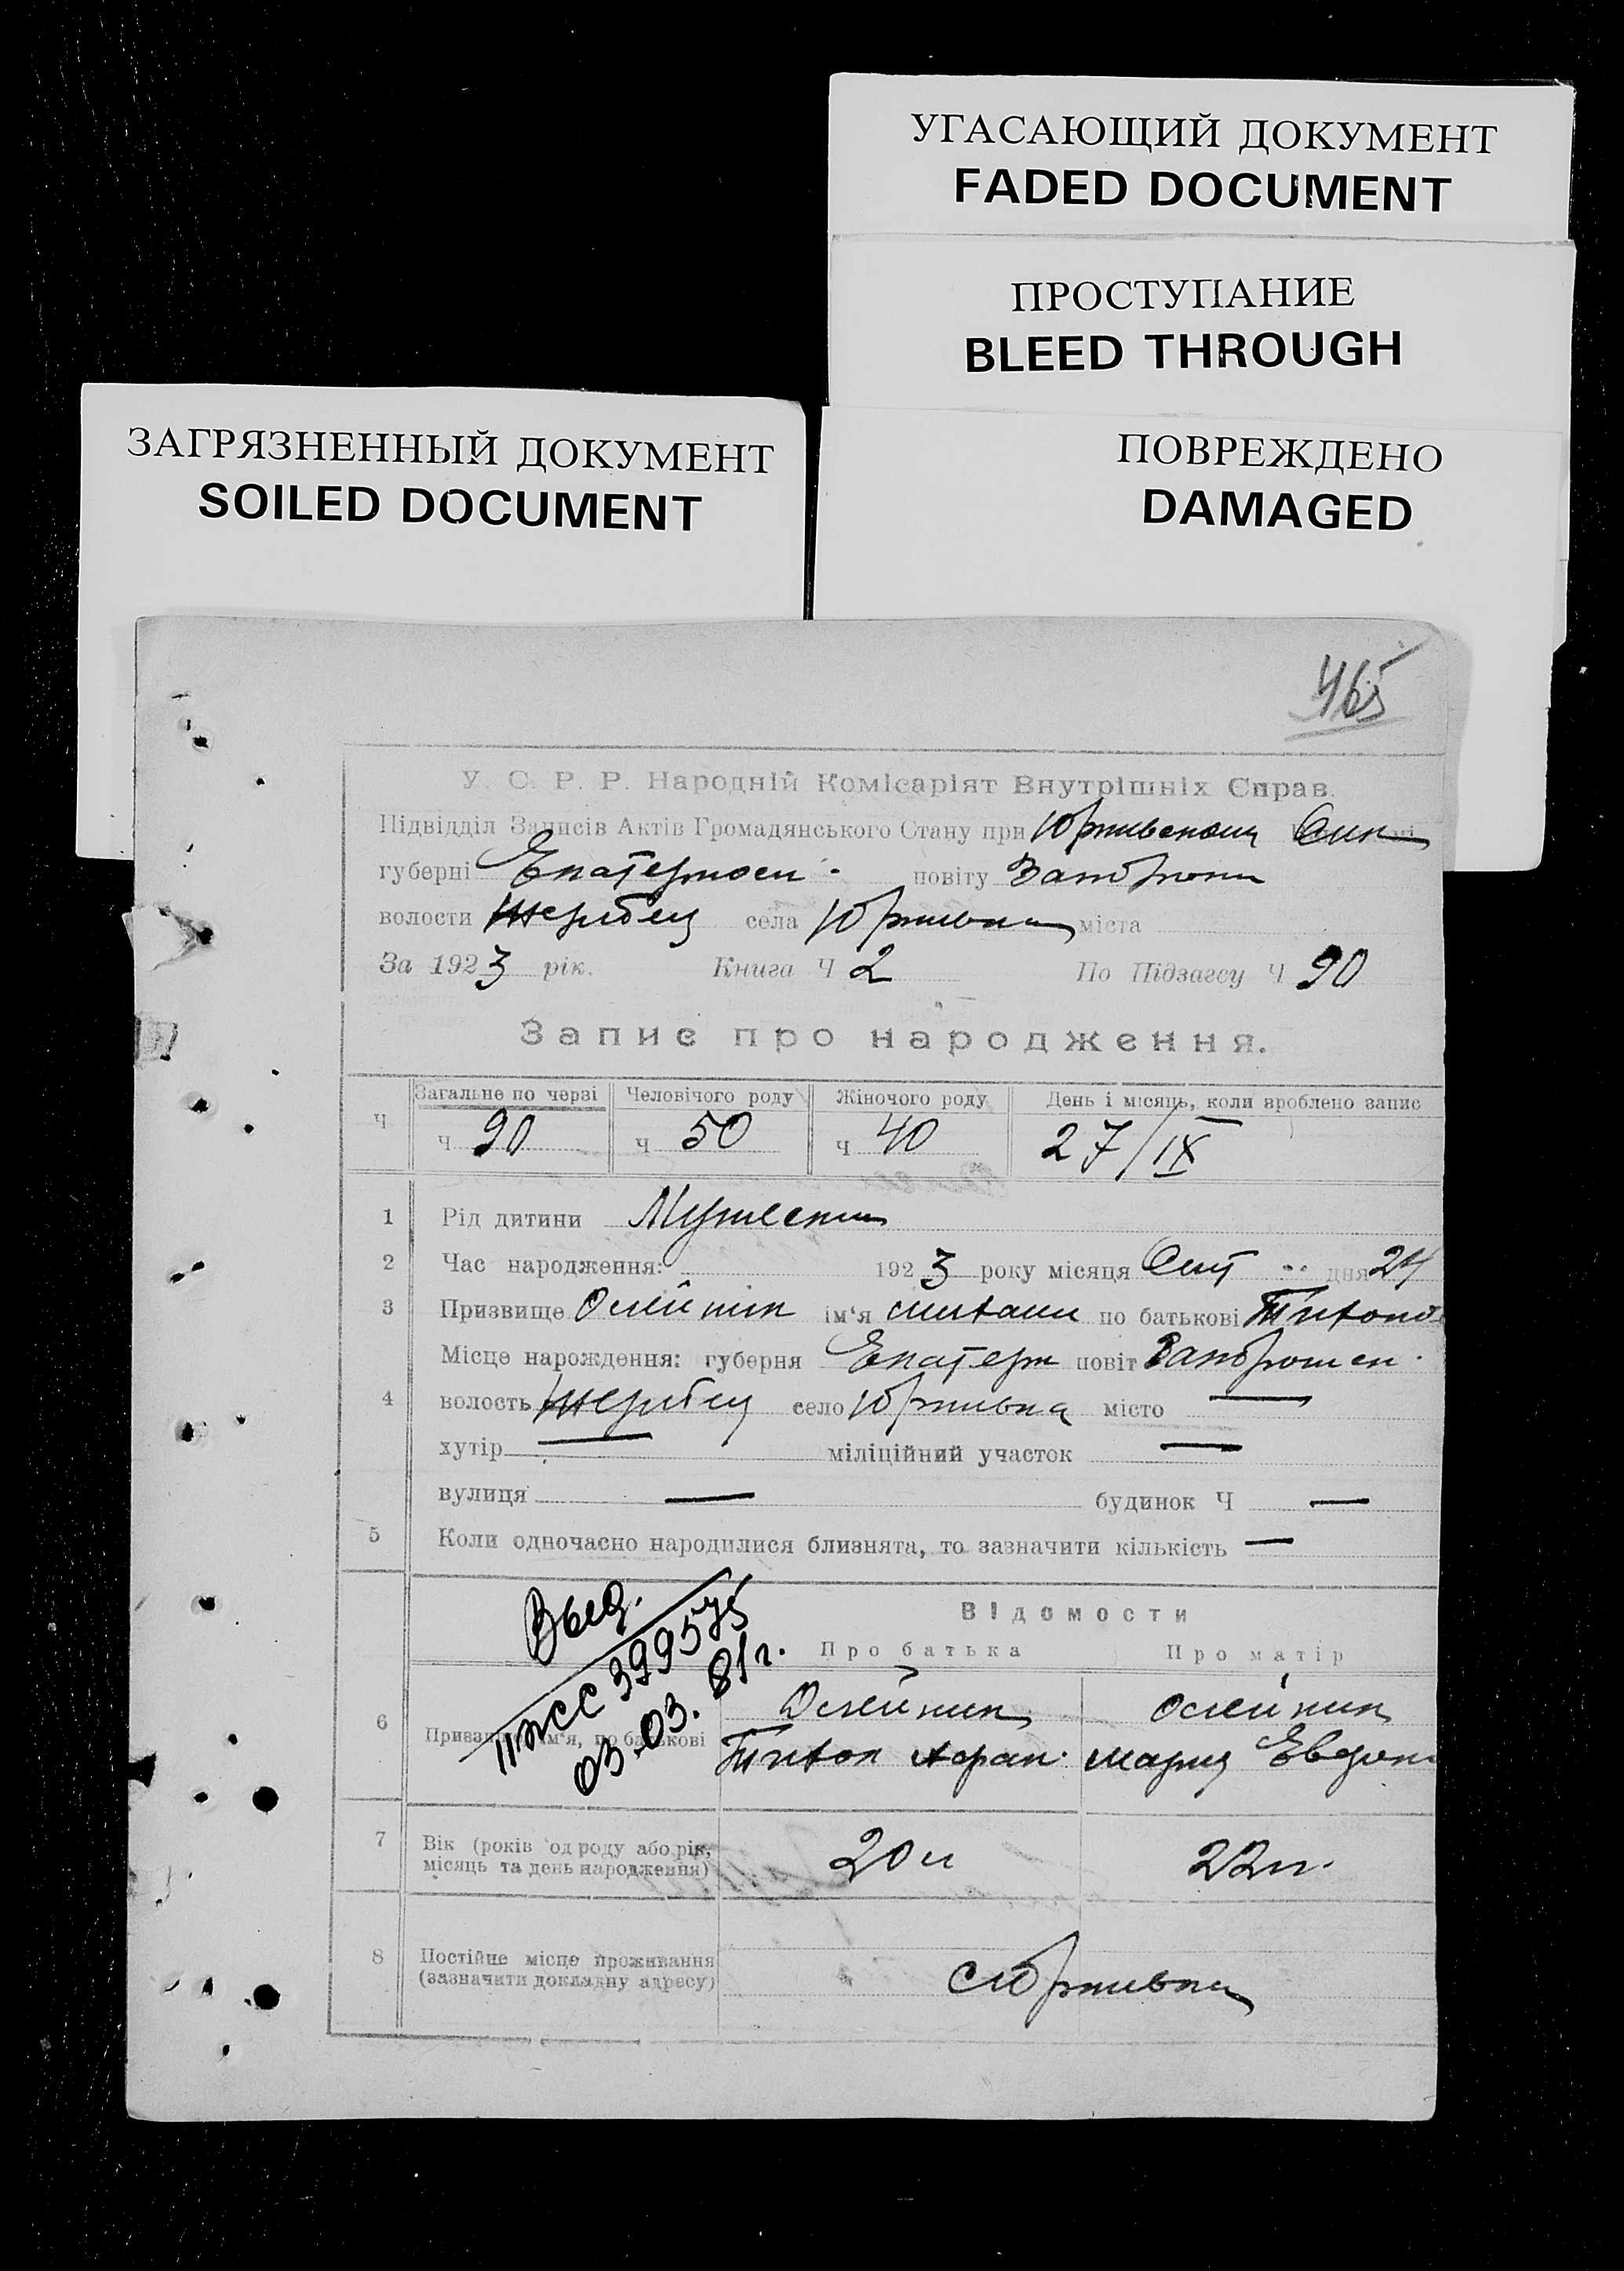 УГАСАЮЩИЙ ДОКУМЕНТ
FADED DOCUMENT
ПРОСТУПАНИЕ
BLEED THROUGH
ЗАГРЯЗНЕННЫЙ ДОКУМЕНТ
SOILED DOCUMENT
ПОВРЕЖДЕНО
DAMAGED
465
У. С. Р. Р. Народній Комісаріят Внутрішніх Справ.
Підвідділ Записів Актів Громадянського Стану при
губерні Екатерносл. повіту
волости Жеребец села Юрживка міста
За 1923 рік. Книга Ч 2 По Підзагсу Ч 90
Запис про народження.
Ч Загальне по черзі Человічого роду Жіночого роду День і місяць, коли вроблено запис
Ч 90 Ч 50 Ч 40 27/IX
1 Рід дитини Мужеский
2 Час народження: 1923 року місяця Сент дня 24
3 Призвище Олейник ім'я по батькові Тихонов
Місце нарождення: губерня Екатерн повіт
4 волость Жеребец село Юрживка місто —
хутір — міліційний участок —
вулиця — будинок Ч —
5 Коли одночасно народилися близнята, то зазначити кількість —
Выд.
ІІЖС 399575
03.03.81г.
Відомости
Про батька Про матір
6 Призвище, ім'я, по батькові
Олейник Олейник
Тихон Афан. Мария Евдоки
7 Вік (років од роду або рік,
місяць та день народження) 20 л 22 л.
8 Постійне місце проживання
(зазначити докладну адресу)
с Юрживка